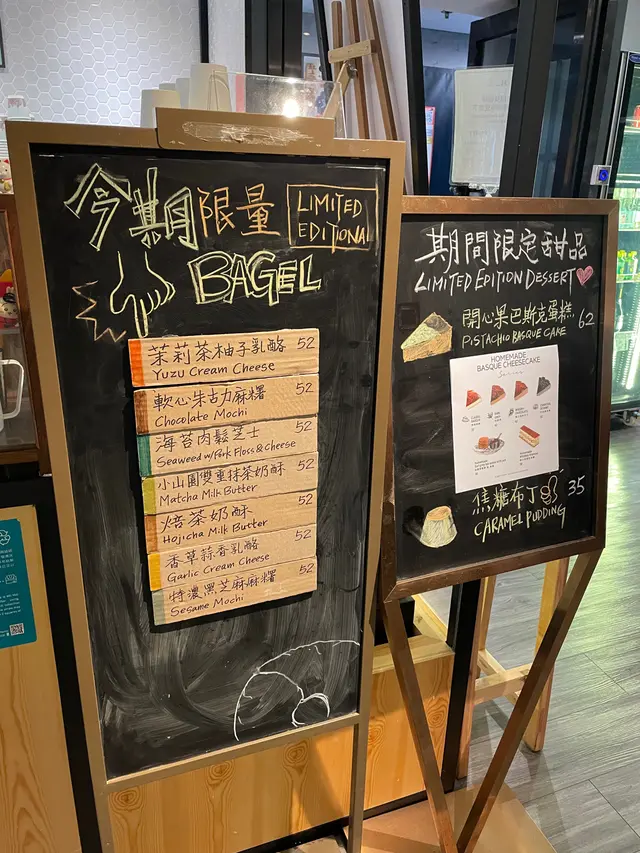 今期限量
LIMITED
EDITIONAL
BAGEL
茉莉茶柚子乳酪 52
Yuzu Cream Cheese
軟心朱古力麻糬 52
Chocolate Mochi
海苔肉鬆芝士 52
Seaweed w/ Pork Floss & Cheese
小山園雙重抹茶奶酥 52
Matcha Milk Butter
焙茶奶酥 52
Hojicha Milk Butter
香草蒜香乳酪 52
Garlic Cream Cheese
特濃黑芝麻麻糬 52
Sesame Mochi
期間限定甜品
LIMITED EDITION DESSERT
開心果巴斯克蛋糕 62
PISTACHIO BASQUE CAKE
HOMEMADE
BASQUE CHEESECAKE
焦糖布丁 35
CARAMEL PUDDING